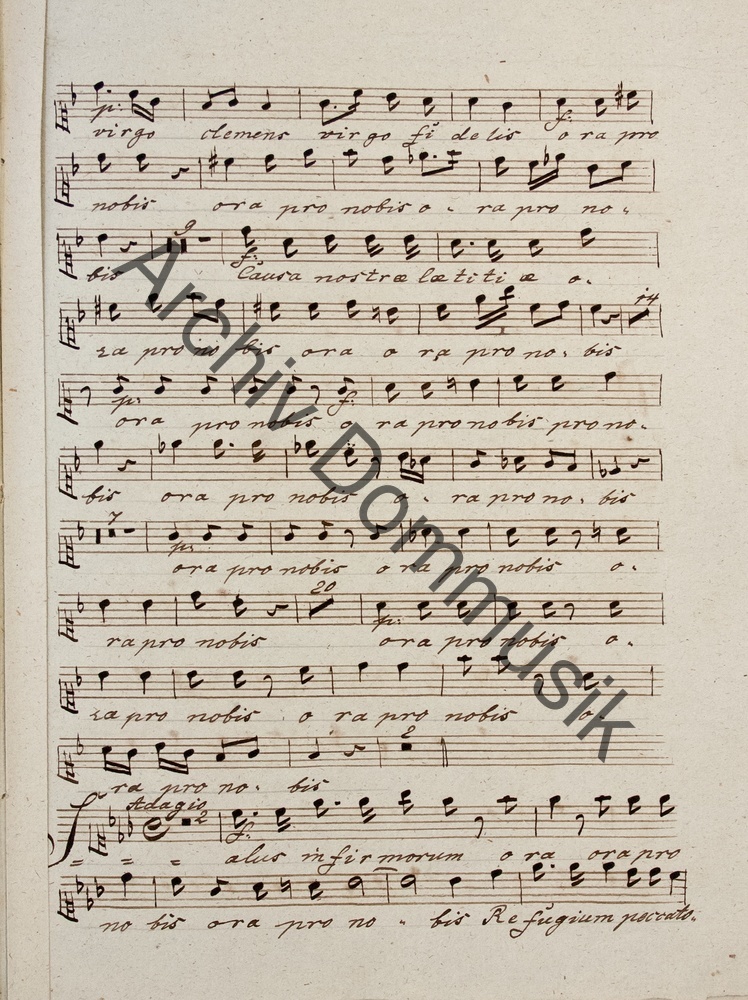 p:
f:
virgo clemens virgo fi delis o ra pro
nobis ora pro nobis o - ra pro no -
9
f:
bis Causa nostræ lætitiæ o -
14
ra pro no bis ora o ra pro no - bis
p:
f:
ora pro nobis o ra pro nobis pro no -
bis ora pro nobis o - ra pro no - bis
7
p:
ora pro nobis o ra pro nobis o -
20
p:
ra pro nobis ora pro nobis o -
ra pro nobis o ra pro nobis o -
2
ra pro no - bis
Adagio
2
f:
S = = = alus infirmorum o ra ora pro
no bis ora pro no - bis Refugium peccato -
Archiv Dommusik